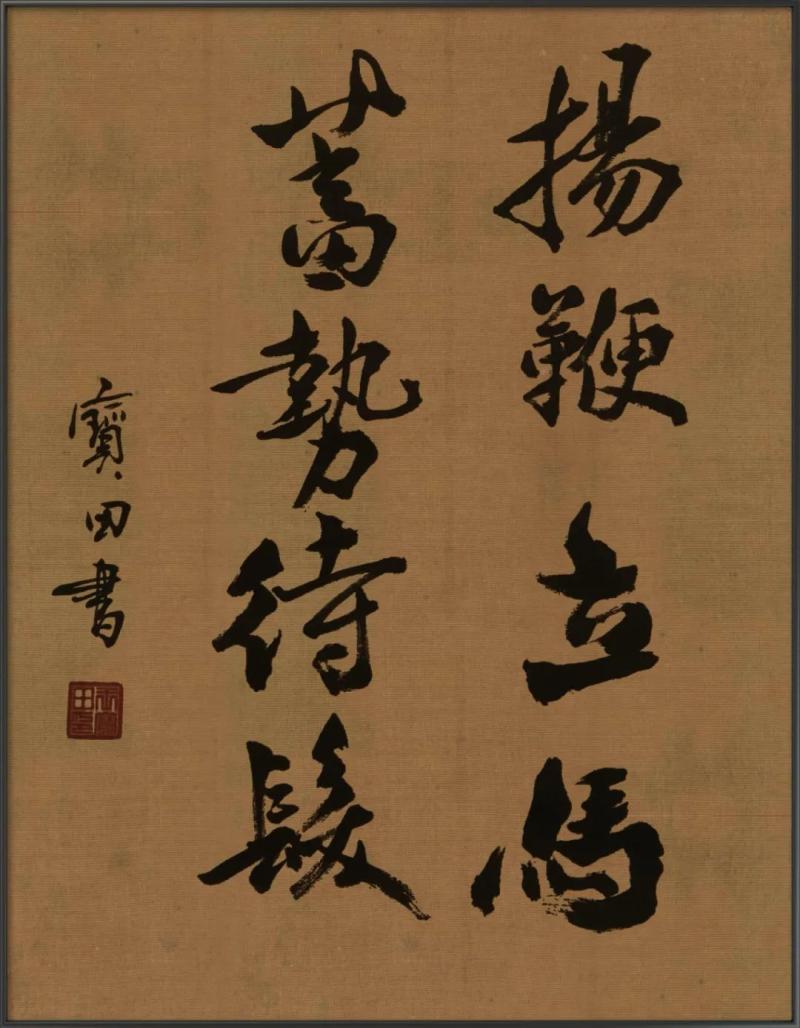 揚鞭立馬
蓄勢待髮
寶田書